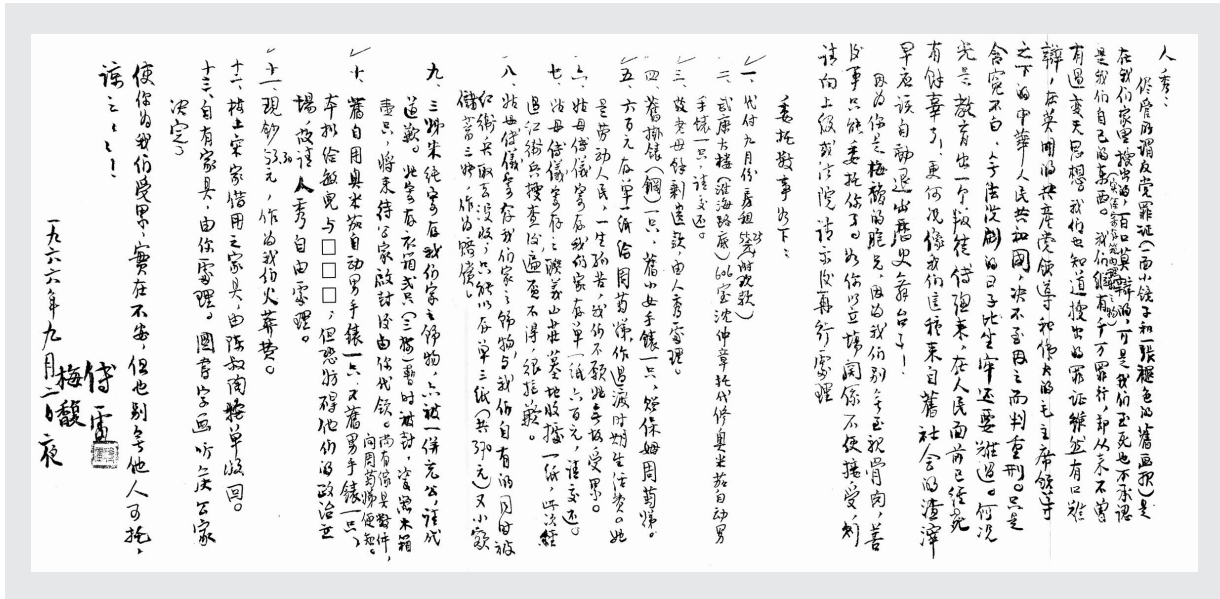 人秀：
儘管所謂反党罪证（一面小鏡子和一張褪色的舊画報）是
在我们家里搜出的，百口莫辯的，可是我们至死也不承認
是我们自己的東西（实係寄存箱内理出之物）。我们縱有千万罪行，却从来不曾
有過变天思想。我们也知道搜出的罪证雖然有口难
辯，在英明的共產党領導和偉大的毛主席領導
之下的中華人民共和國，决不至因之而判重刑。只是
含冤不白，無法洗刷的日子比坐牢还要难過。何况
光是教育出一个叛徒傅聪来，在人民面前已经死
有餘辜了！更何况像我们這種来自舊社会的渣滓
早应該自動退出歷史舞台了！
因为你是梅馥的胞兄，因为我们别無至親骨肉，善
後事只能委托你了。如你以立場関係不便接受，则
请向上级或法院請示後再行處理
委托数事如下：
一、代付九月份房租55.29元（附现款）
二、武康大楼（淮海路底）606室沈仲章托代修奥米茄自动男
手錶一只，請交还。
三、故老母餘剩遺款，由人秀處理。
四、舊掛錶（鋼）一只，舊小女手錶一只，贈保姆周菊娣。
五、六百元存单一紙给周菊娣，作過渡时期生活费。她
是劳动人民，一生孤苦，我们不願她無故受累。
六、姑母傅儀寄存我们家存单一紙六百元，請交还。
七、姑母傅儀寄存之聯義山莊墓地收據一紙，此次經
過红衛兵搜查後，遍覓不得，很抱歉。
八、姑母傅儀寄存我们家之飾物，与我们自有的同时被
红衛兵取去没收，只能以存单三紙（共370元）又小额
儲蓄三张，作为賠償。
九、三姊朱純寄存我们家之飾物，亦被一併充公，請代
道歉。她寄存衣箱弍只（三楼）暫时被封，瓷器木箱
壹只，將来待公家啟封後由你代領。尚有傢具数件，
问周菊娣便知。
十、舊自用奥米茄自动男手錶一只，又舊男手錶一只，
本拟给敏兒与□□□，但恐妨碍他们的政治立
場，故請人秀自由處理。
十一、现钞53.30元，作为我们火葬费。
十二、楼上宋家借用之家具，由陈叔陶按单收回。
十三、自有家具，由你處理。圖書字画听候公家
决定。
使你为我们受累，實在不安，但也别無他人可托，
諒之諒之！
傅雷
梅馥
一九六六年九月二日夜